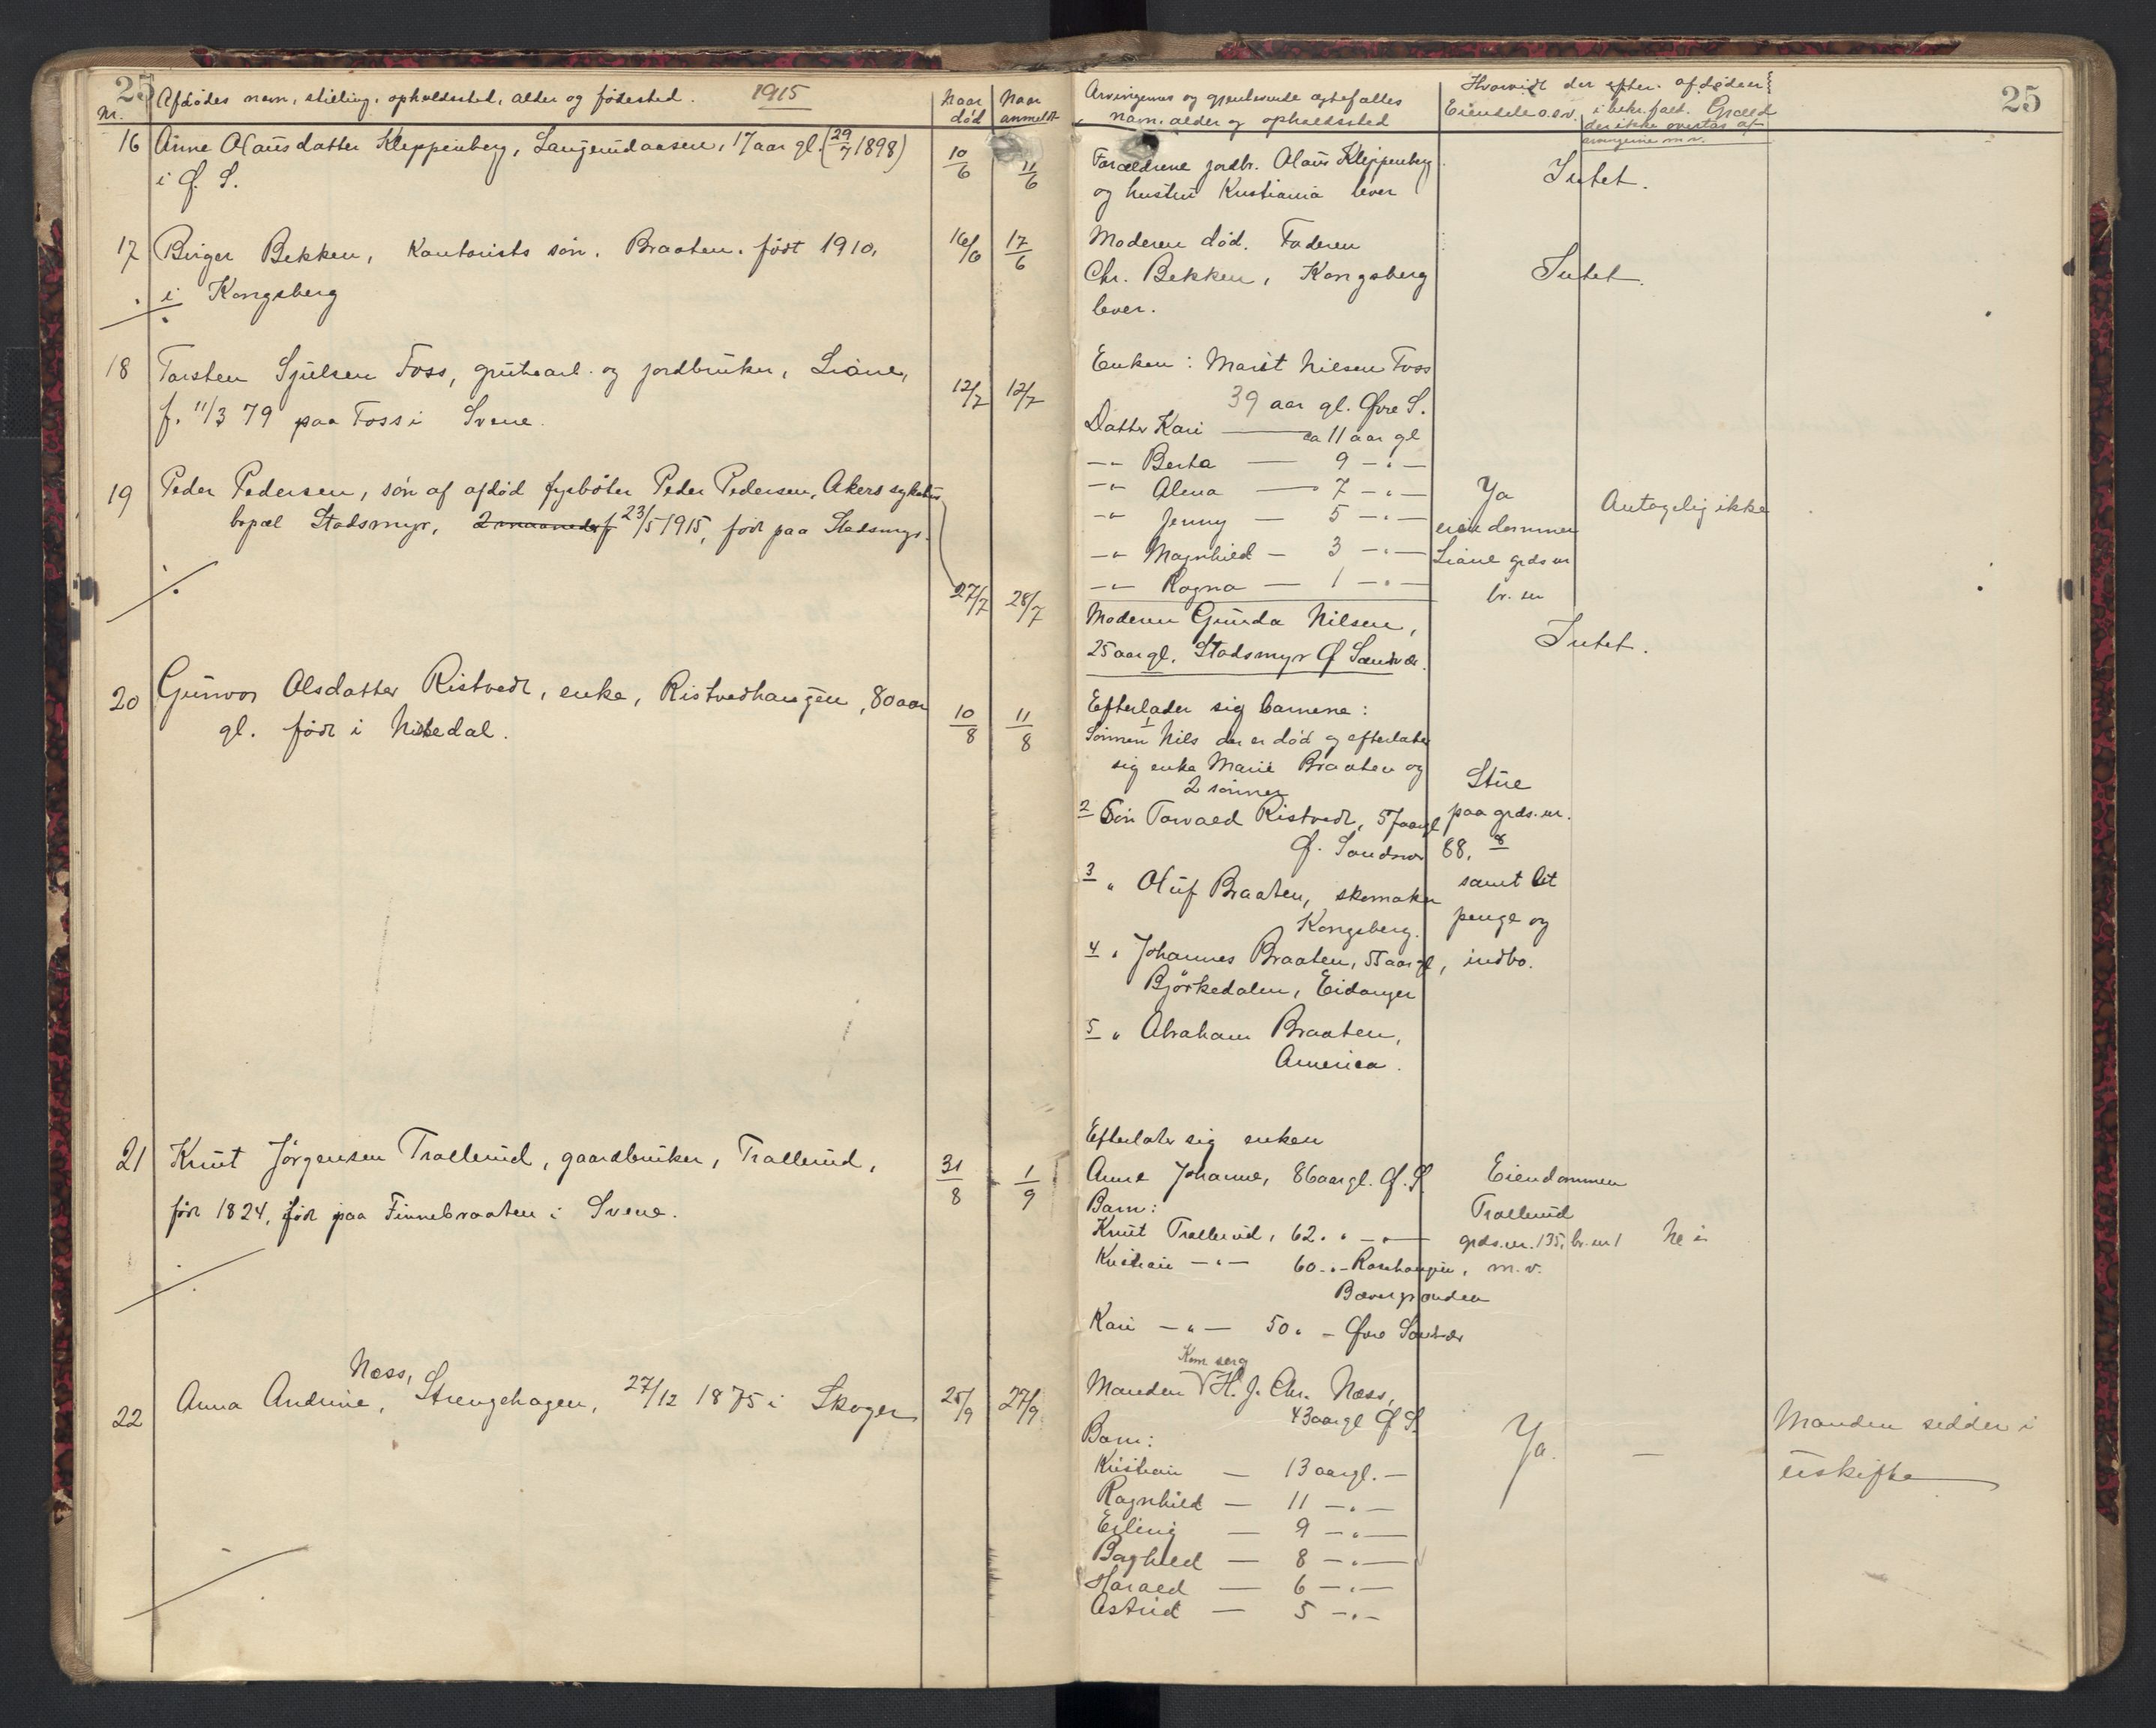 25
Nr.
Afdødes navn, stilling, opholdssted, alder og fødested. 1915
Naar død
Naar anmeldt
16 Anne Olausdatter Kleppenberg, Langerudaasen, 17 aar gl. (29/7 1898)
i Ø. S.
10/6 11/6
17 Birger Bekken, Kontorists søn. Braaten. født 1910,
i Kongsberg
16/6 17/6
18 Torsten Sjulsen Foss, grubearb. og jordbruker, Liane,
f. 11/3 79 paa Foss i Svene.
12/7 12/7
19 Peder Pedersen, søn af afdød fyrbøter Peder Pedersen, Akers sykehus
bopæl Stadsmyr, 2 maaneder f 23/5 1915, født paa Stadsmyr.
27/7 28/7
20 Gunvor Olsdatter Ristvedt, enke, Ristvedhaugen, 80 aar
gl. født i
10/8 11/8
21 Knut Jørgensen Trollerud, gaardbruker, Trollerud,
født 1824, født paa Finnebraaten i Svene.
31/8 1/9
Næss,
22 Anna Andrine, Strengehagen, 27/12 1875 i Skoger
25/9 27/9
25
Arvingernes og gjenlevende egtefælles
navn, alder og opholdssted
Hvorvidt der efter afdøden
Eiendele o.s.v. i bekr. fald. Gjæld
der ikke overtas af
arvingerne m.v.
Forældrene jordbr. Olaus Kleppenberg
og hustru Kristiania lever
Intet.
Moderen død. Faderen
Chr. Bekken, Kongsberg
lever.
Intet.
Enken: Marit Nilsen Foss
39 aar gl. Øvre S.
Datter Kari — ca 11 aar gl
-"- Berta — 9 -"-
-"- Alma — 7 -"-
-"- Jenny — 5 -"-
-"- Magnhild — 3 -"-
-"- Ragna — 1 -"-
Ya
eiendommen
Liane grds nr
br. nr
Antagelig ikke
Moderen Gunda Nilsen,
25 aar gl. Stadsmyr Ø Sandsv.
Intet.
Efterlader sig barnene:
1 Sønnen Nils der er død og efterlater
sig enke Marie Braaten og
2 sønner
2 Søn Torvald Ristvedt, 57 aar gl
Ø. Sandsvær
3 " Oluf Braaten, skomaker
Kongsberg.
4 " Johannes Braaten, 55 aar gl,
Bjørkedalen, Eidanger
5 " Abraham Braaten,
America.
Stue
paa grds. nr.
88, 8
samt lit
penge og
indbo.
Efterlater sig enken
Anne Johanne, 86 aar gl. Ø. S.
Barn:
Knut Trollerud, 62 " -"-
Kristian -"- 60 -"- Rosehaugen,
Bærumsgrænden
Kari -"- 50 " - Øvre Sandsvær
Eiendommen
Trollerud
grds. nr. 135, br. nr 1
m. v.
Nei
Kom serg
Manden H. J. Chr. Næss,
43 aar gl Ø S.
Barn:
Kristian — 13 aar gl. —
Ragnhild — 11 -"-
Erling — 9 -"-
Baghild — 8 -"-
Harald — 6 -"-
Astrid — 5 -"-
Ya.
—
Manden sidder i
uskifte